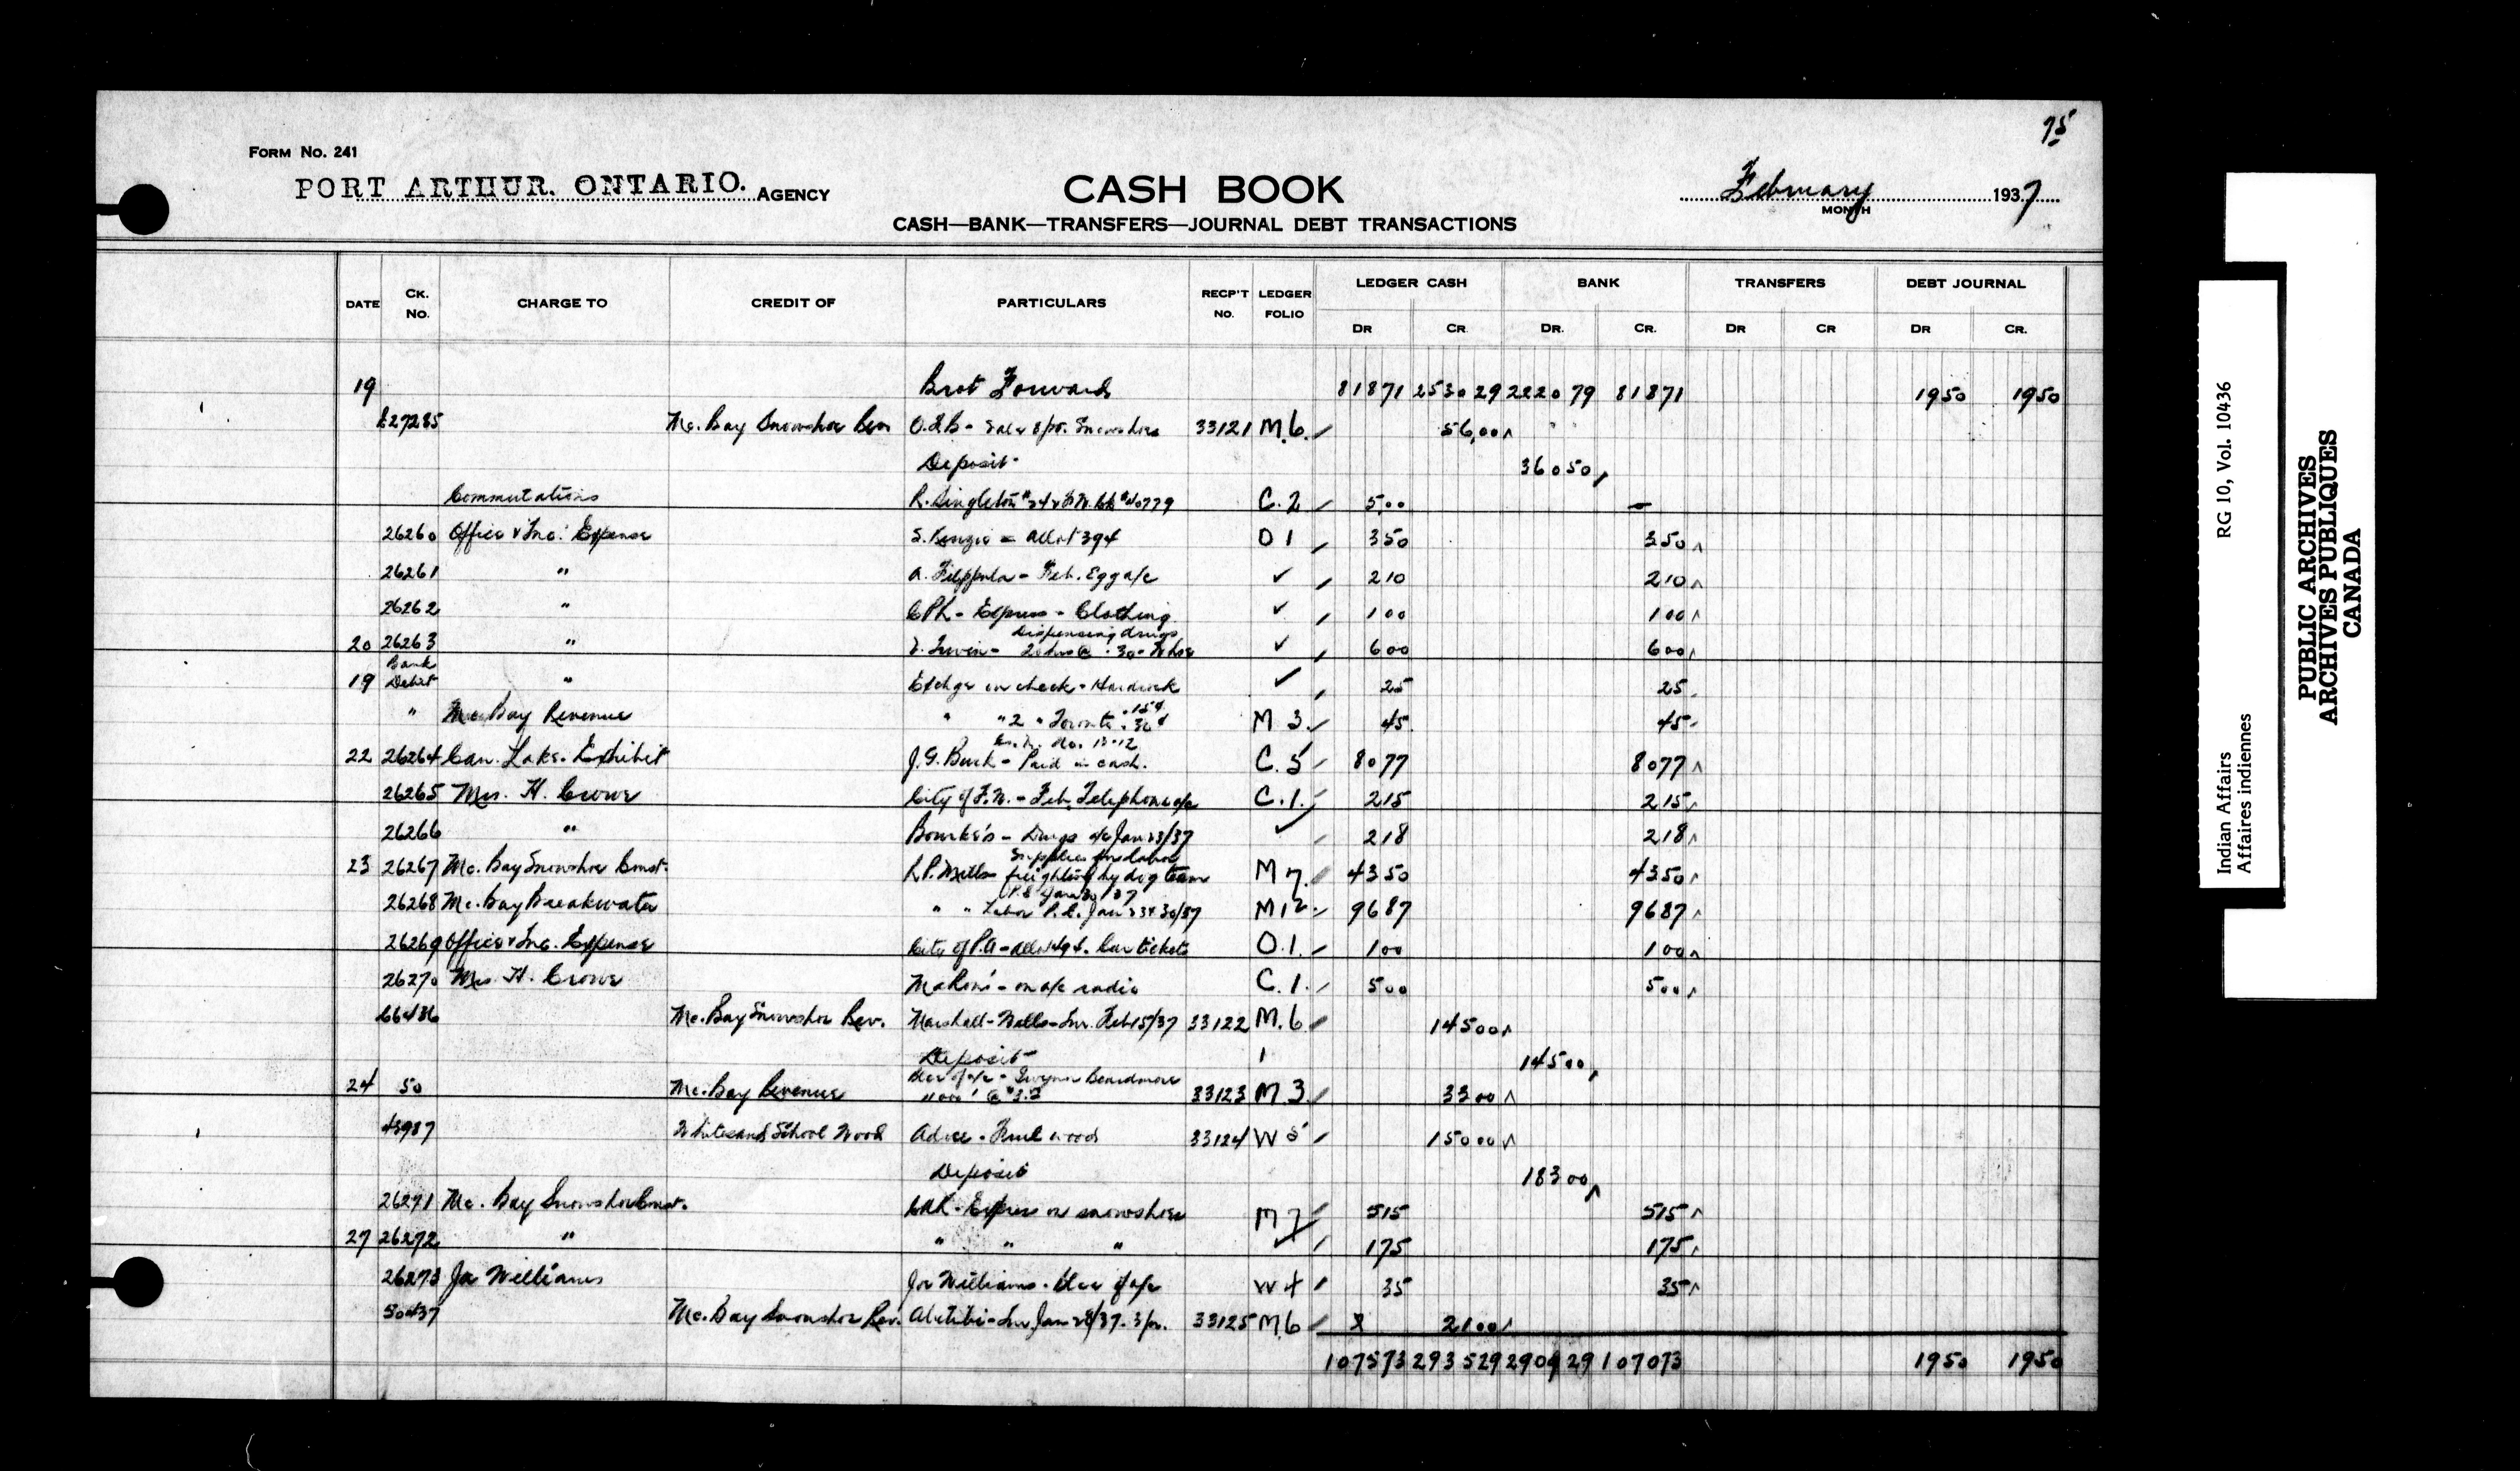 75
FORM NO. 241
PORT ARTHUR. ONTARIO. AGENCY
CASH BOOK
February 1937
MONTH
CASH—BANK—TRANSFERS—JOURNAL DEBT TRANSACTIONS
DATE CK. NO. CHARGE TO CREDIT OF PARTICULARS RECP'T NO. LEDGER FOLIO LEDGER CASH DR CR. BANK DR. CR. TRANSFERS DR CR DEBT JOURNAL DR CR.
19 Brot Forward 81871 253029 222079 81871 1950 1950
E27285 Mc. Bay Snowshoe Rev O.S.B - Sale 8 pr. Snowshoes 33121 M.6. 56,00
Deposit 36050
Commutations R. Singleton #24 & F.W. Ck #40779 C.2 500 —
26260 Office & Inc. Expense S. Kenzie = Allot 394 O 1 350 350
26261 " A. Filppula - Feb. Egg a/c ✓ 210 210
26262 " CPR - Express - Clothing ✓ 100 100
20 26263 " Dispensing drugs
Irwin - 20 hrs @ .30 - ✓ 600 600
19 Bank Debit " Exchge on check - Hardrock ✓ 25 25
" Mc. Bay Revenue " " 2 " Toronto .15¢ .30¢ M 3. 45 45
22 26264 Can. Laks. Exhibit J.G. Burk - Paid in cash. C.5 8077 8077
26265 Mrs. H. Crowe City of F.W. - Feb. Telephone a/c C.1. 215 215
26266 " Bourke's - Drugs a/c Jan 23/37 ✓ 218 218
23 26267 Mc. Bay Snowshoe Const. Supplies and labor
R.P. Mills freighting by dog team M 7. 4350 4350
P.S. Jan 30/37
26268 Mc. Bay Breakwater " " Labor P.L. Jan 23 & 30/37 M12. 9687 9687
26269 Office & Inc. Expense City of P.A - Allot 494. Car tickets O.1. 100 100
26270 Mrs. H. Crowe Mahon's - on a/c radio C.1. 500 500
66436 Mc. Bay Snowshoe Rev. Marshall-Wells - Inv. Feb 15/37 33122 M.6 14500
Deposit 14500
24 50 Mc. Bay Revenue Beardmore
33123 M 3. 3300
43987 Whitesand School Wood Advce - Fuel wood 33124 W 5 15000
Deposit 18300
26271 Mc. Bay Snowshoe Const. CNR - Express on snowshoes M 7 515 515
27 26272 " " " " ✓ 175 175
26273 Joe Williams Joe Williams - Clse of a/c W 4 35 35
50437 Mc. Bay Snowshoe Rev. Abitibi - Inv Jan 28/37 - 3 pr. 33125 M.6 x 2100
107573 293529 290929 107073 1950 1950
PUBLIC ARCHIVES
ARCHIVES PUBLIQUES
CANADA
Indian Affairs RG 10, Vol. 10436
Affaires indiennes